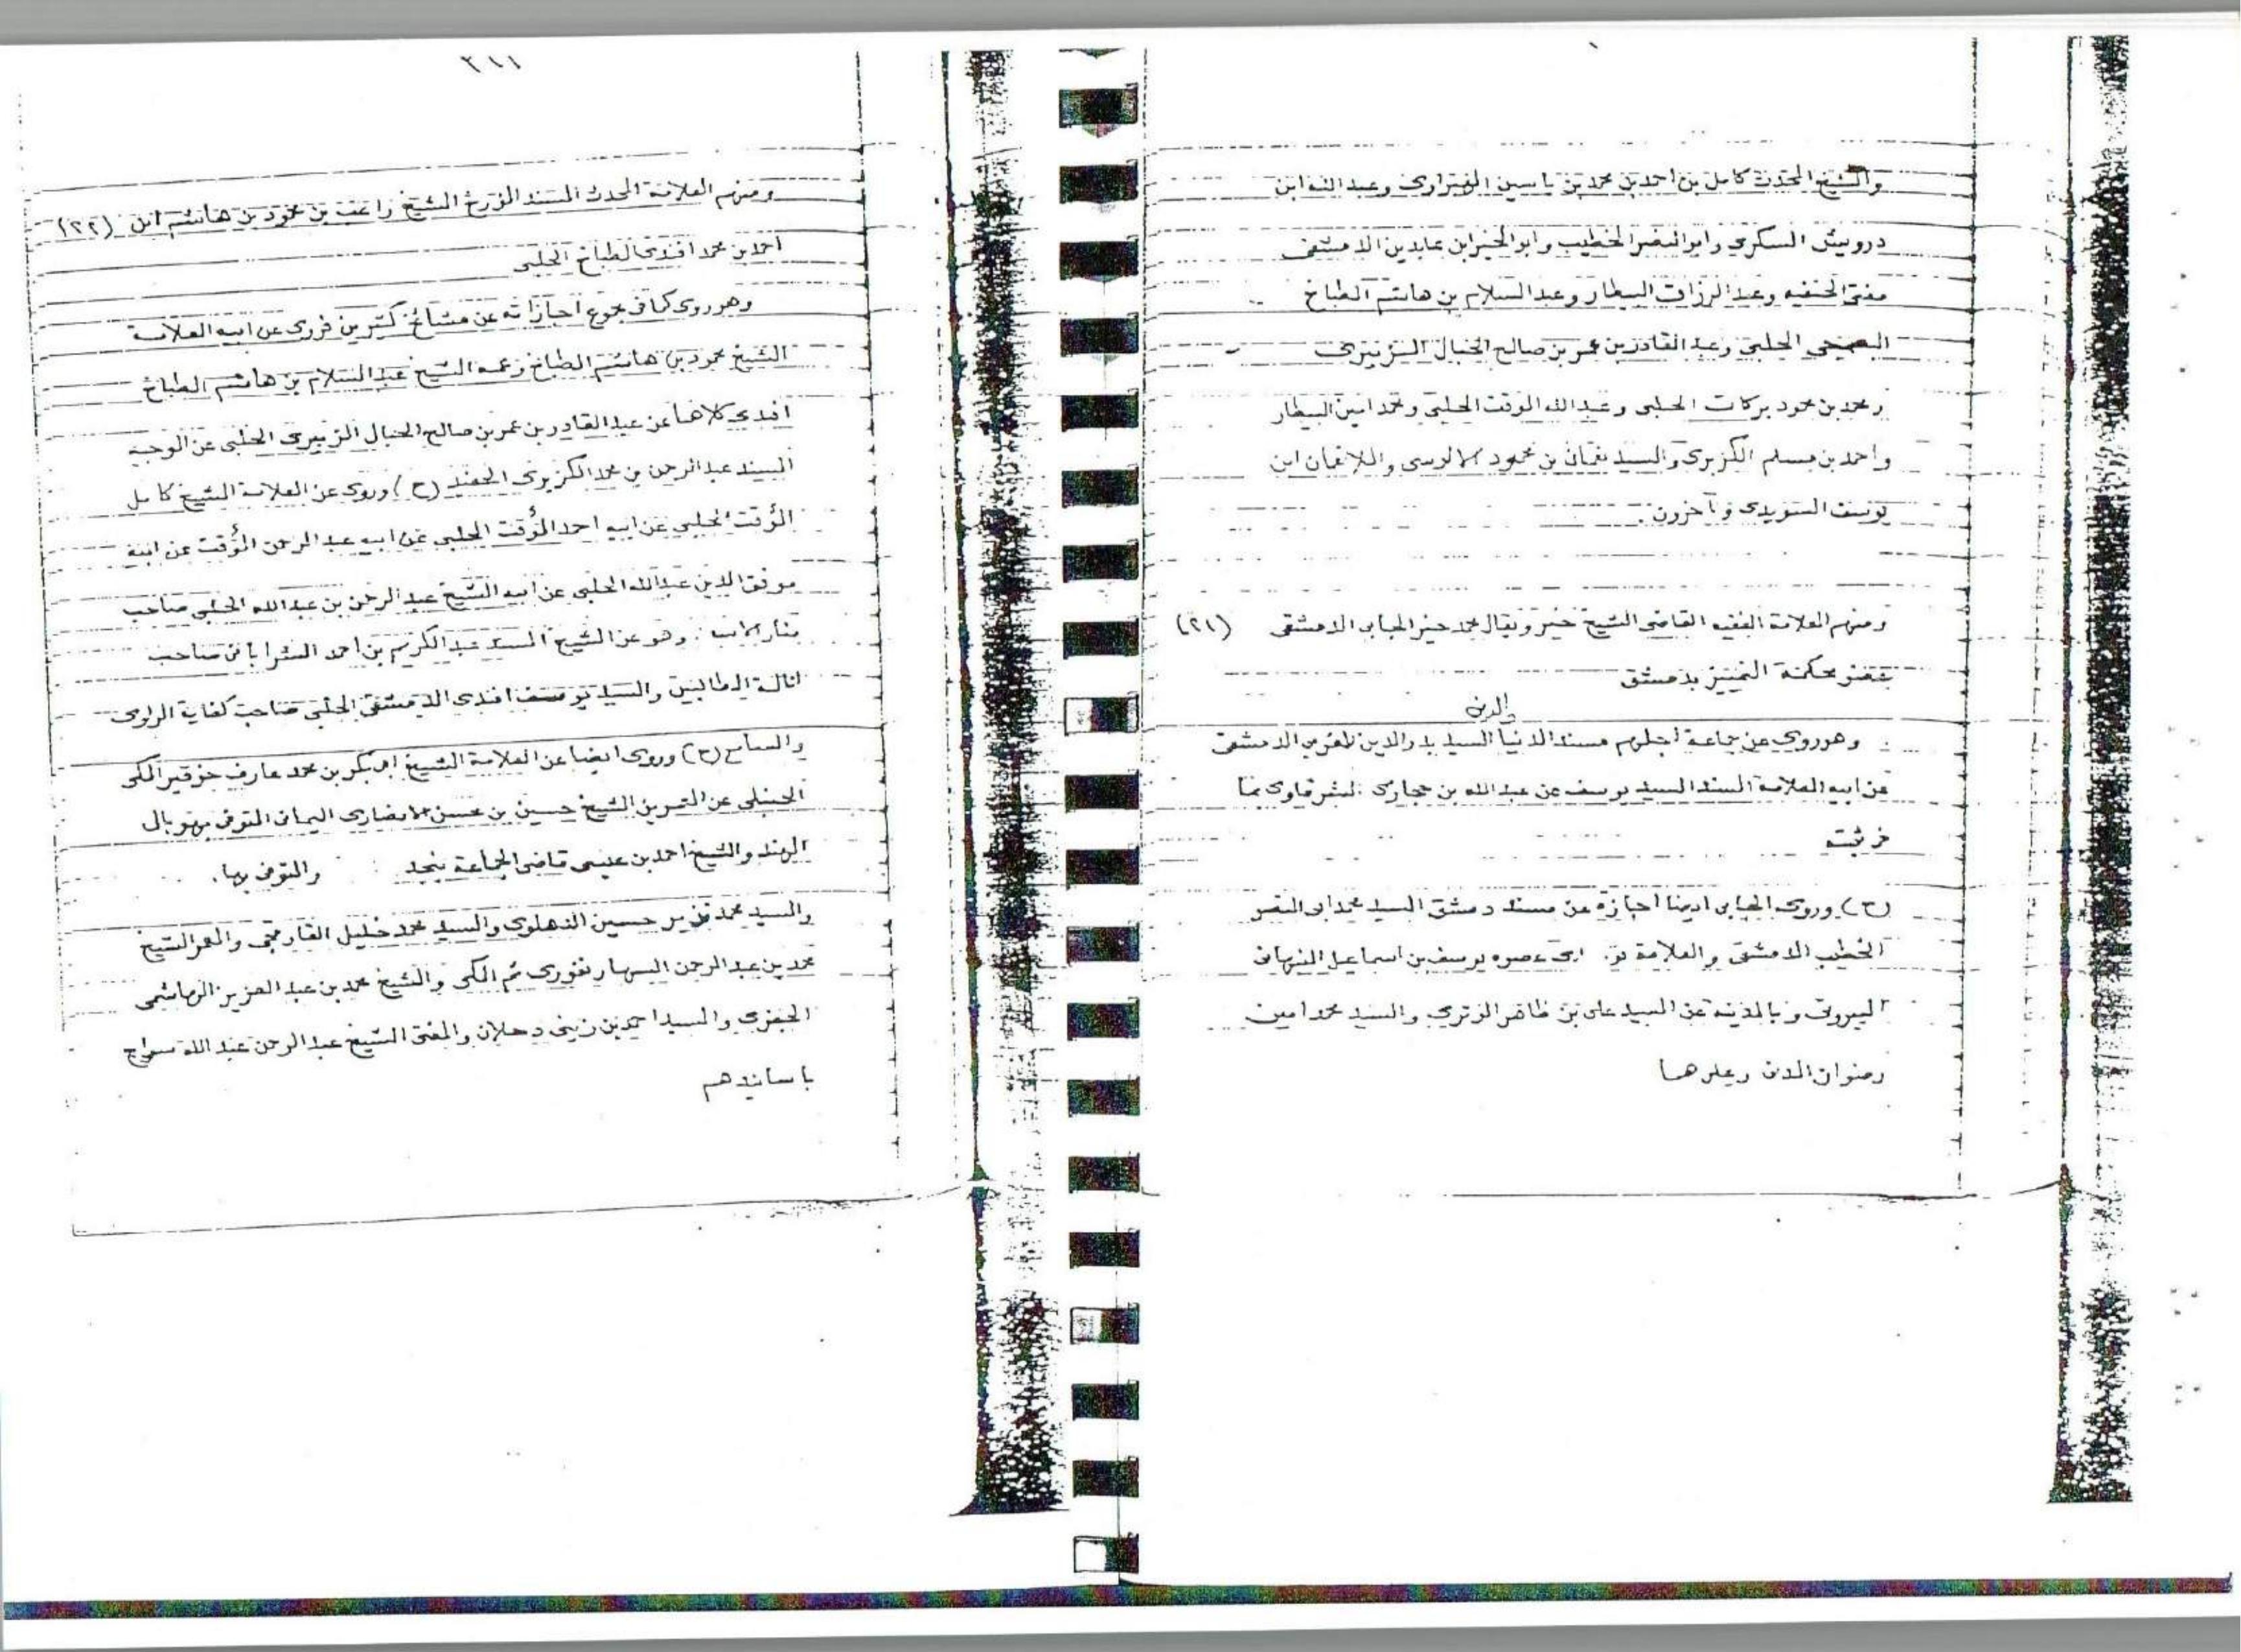 والشيخ المحدث كامل بن احمد بن محمد بن ياسين الهبراوى وعبد الله ابن
درويش السكرى وابو النصر الخطيب وابو الخير ابن عابدين الدمشقى
مفتى الحنفيه وعبد الرزاق البيطار وعبد السلام بن هاشم الطباخ
الحلبى وعبد القادر بن عمر بن صالح الحبال الزبيرى
ومحمد بن محمود بركات الحلبى وعبد الله الموقت الحلبى ومحمد امين البيطار
واحمد بن مسلم الكزبرى والسيد نعمان بن محمود الالوسى والملا نعمان ابن
يوسف السويدى وآخرون.
ومنهم العلامة الفقيه القاضى الشيخ خير ويقال محمد خير الحبابى الدمشقى (٢١)
عضو محكمة التمييز بدمشق
وهو روى عن جماعة اجلهم مسند الدنيا السيد بدر الدين المغربى الدمشقى
عن ابيه العلامة المسند السيد يوسف عن عبد الله بن حجازى الشرقاوى بما
فى ثبته
(ح) وروى الحبابى ايضا اجازة عن مسند دمشق السيد محمد ابى النصر
الخطيب الدمشقى والعلامة عصره يوسف بن اسماعيل النبهانى
البيروتى وبالمدينة عن السيد على بن ظاهر الوترى والسيد محمد امين
رضوان المدنى وغيرهما
٢١١
ومنهم العلامة المحدث المسند المؤرخ الشيخ راغب بن محمود بن هاشم ابن (٢٢)
احمد بن محمد افندى الطباخ الحلبى
وهو روى كما فى مجموع اجازاته عن مشائخ كثيرين فروى عن ابيه العلامة
الشيخ محمود بن هاشم الطباخ وعمه الشيخ عبد السلام بن هاشم الطباخ
افندى كلاهما عن عبد القادر بن عمر بن صالح الحبال الزبيرى الحلبى عن الوجيه
السيد عبد الرحمن بن محمد الكزبرى الحفيد (ح) وروى عن العلامة الشيخ كامل
المؤقت الحلبى عن ابيه احمد المؤقت الحلبى عن ابيه عبد الرحمن المؤقت عن ابيه
موفق الدين عبد الله الحلبى عن ابيه الشيخ عبد الرحمن بن عبد الله الحنبلى صاحب
منار الاسعاد وهو عن الشيخ السيد عبد الكريم بن احمد الشراباتى صاحب
انالة الطالبين والسيد يوسف افندى الدمشقى الحلبى صاحب كفاية الراوى
والسامع (ح) وروى ايضا عن العلامة الشيخ ابى بكر بن محمد عارف خوقير المكى
الحنبلى عن الشيخ حسين بن محسن الانصارى اليمانى المتوفى بهوبال
الهند والشيخ احمد بن عيسى قاضى الجماعة بنجد والمتوفى بها.
والسيد محمد نذير حسين الدهلوى والسيد محمد خليل القاوقجى والمعمر الشيخ
محمد بن عبد الرحمن السهارنفورى ثم المكى والشيخ محمد بن عبد العزيز الهاشمى
الجعفرى والسيد احمد بن زينى دحلان والمفتى الشيخ عبد الرحمن عبد الله سراج
باسانيدهم